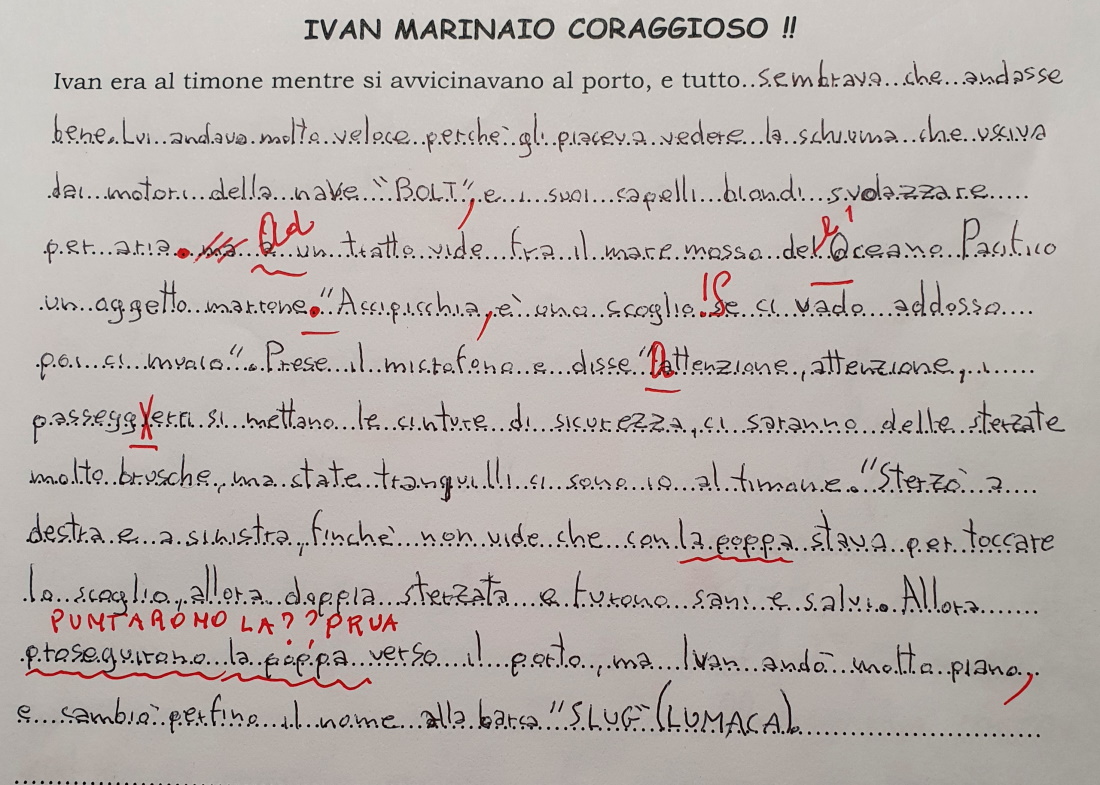 IVAN MARINAIO CORAGGIOSO !!
Ivan era al timone mentre si avvicinavano al porto, e tutto sembrava che andasse
bene. Lui andava molto veloce perchè gli piaceva vedere la schiuma che usciva
dai motori della nave "BOLT", e i suoi capelli biondi svolazzare
per aria. ma a Ad un tratto vide fra il mare mosso del l' Oceano Pacifico
un oggetto marrone. "Accipicchia, è uno scoglio! Se ci vado addosso
poi ci muoio". Prese il microfono e disse "Attenzione, attenzione, i
passeggieri si mettano le cinture di sicurezza, ci saranno delle sterzate
molto brusche, ma state tranquilli ci sono io al timone." Sterzò a
destra e a sinistra, finchè non vide che con la poppa stava per toccare
lo scoglio, allora doppia sterzata e furono sani e salvi. Allora
PUNTARONO LA?? PRUA
proseguirono la poppa verso il porto, ma Ivan andò molto piano,
e cambiò perfino il nome alla barca "SLUG" (LUMACA).